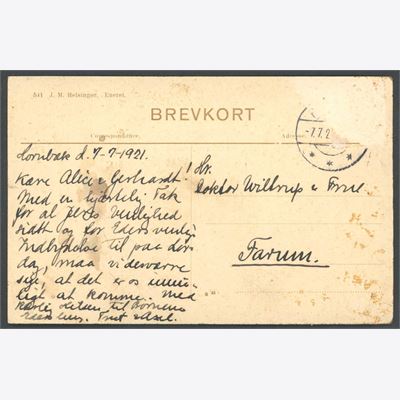 541 J. M. Helsingør. Eneret.
BREVKORT
Correspondance.
Adresse.
-7.7.2
Hornbæk d. 7-7-1921.
Kære Alice & Gerhardt!
Med en hjærtelig Tak
for al Jeres Venlighed
samt og for Eders venlig
Indbydelse til paa
dag, maa vi desværre
sige, at det er os umu-
ligt at komme. Med
kærlig Hilsen til Børnene
Axel.
Hr.
Doktor Wiltrup & Frue.
Farum.